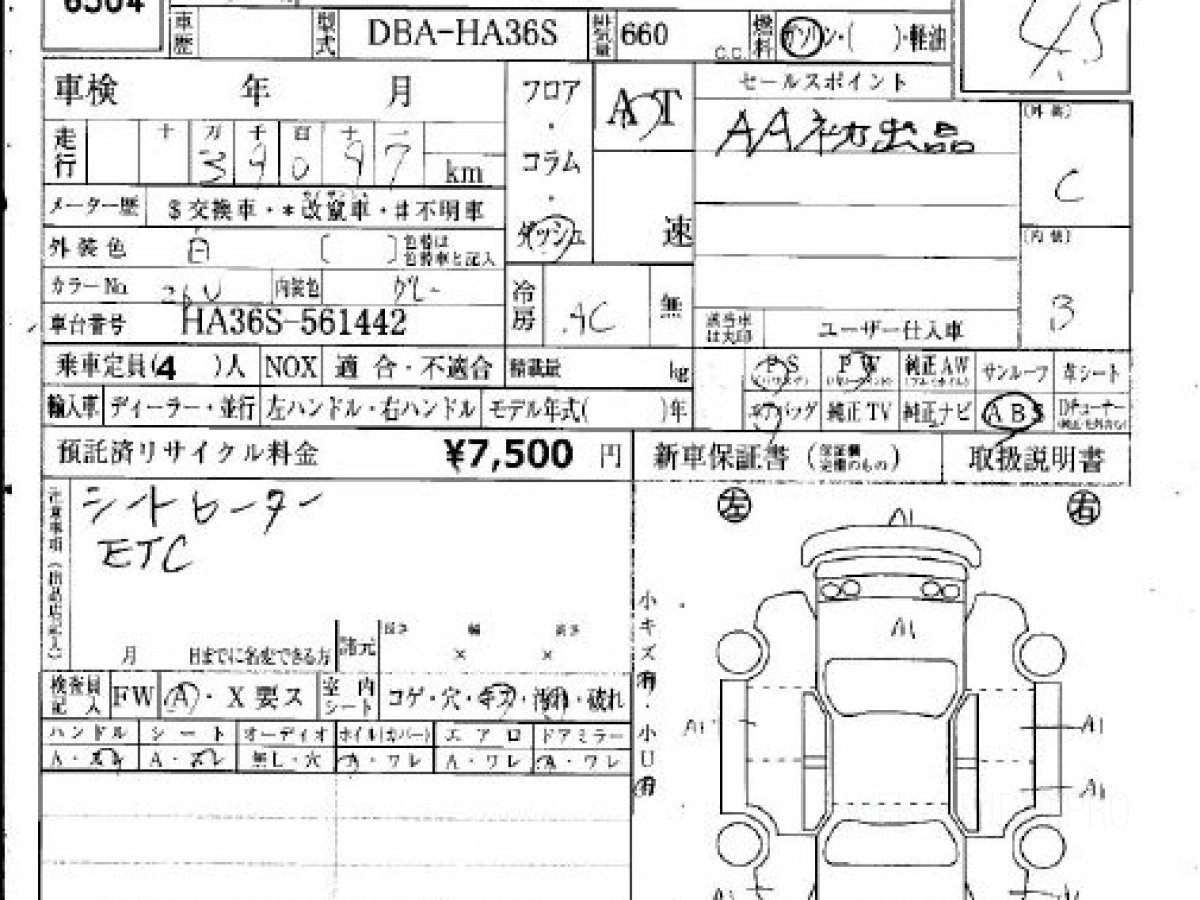 6504
車歴 型式 DBA-HA36S 排気量 660 C.C. 燃料 ガソリン・( )・軽油
4.5
車検 年 月 フロア・コラム・ダッシュ AT 速 セールスポイント
AA初出品
(外装) C
走行 十 万 千 百 十 一
3 9 0 9 7 km
メーター歴 $交換車・*改竄車・#不明車
(内装) B
外装色 白 ( ) 色替は色替車と記入
カラーNo. 26U 内装色 グレー 冷房 AC 無
車台番号 HA36S-561442 該当車は丸印 ユーザー仕入車
乗車定員(4 )人 NOX 適合・不適合 積載量 kg PS PW 純正AW サンルーフ 革シート
輸入車 ディーラー・並行 左ハンドル・右ハンドル モデル年式( )年 エアバッグ 純正TV 純正ナビ ABS
預託済リサイクル料金 ¥7,500 円 新車保証書 取扱説明書
シートヒーター
ETC
左 右
A1
A1
小キズ有・小U有
月 日までに名変できる方 諸元 長さ 幅 高さ
× ×
検査員記入 FW A・X要ス 室内シート コゲ・穴・キズ・汚れ・破れ
ハンドル シート オーディオ ホイル(カバー) エアロ ドアミラー
A・スレ A・スレ 無L・穴 A・ワレ A・ワレ A・ワレ
A1 A1
A1